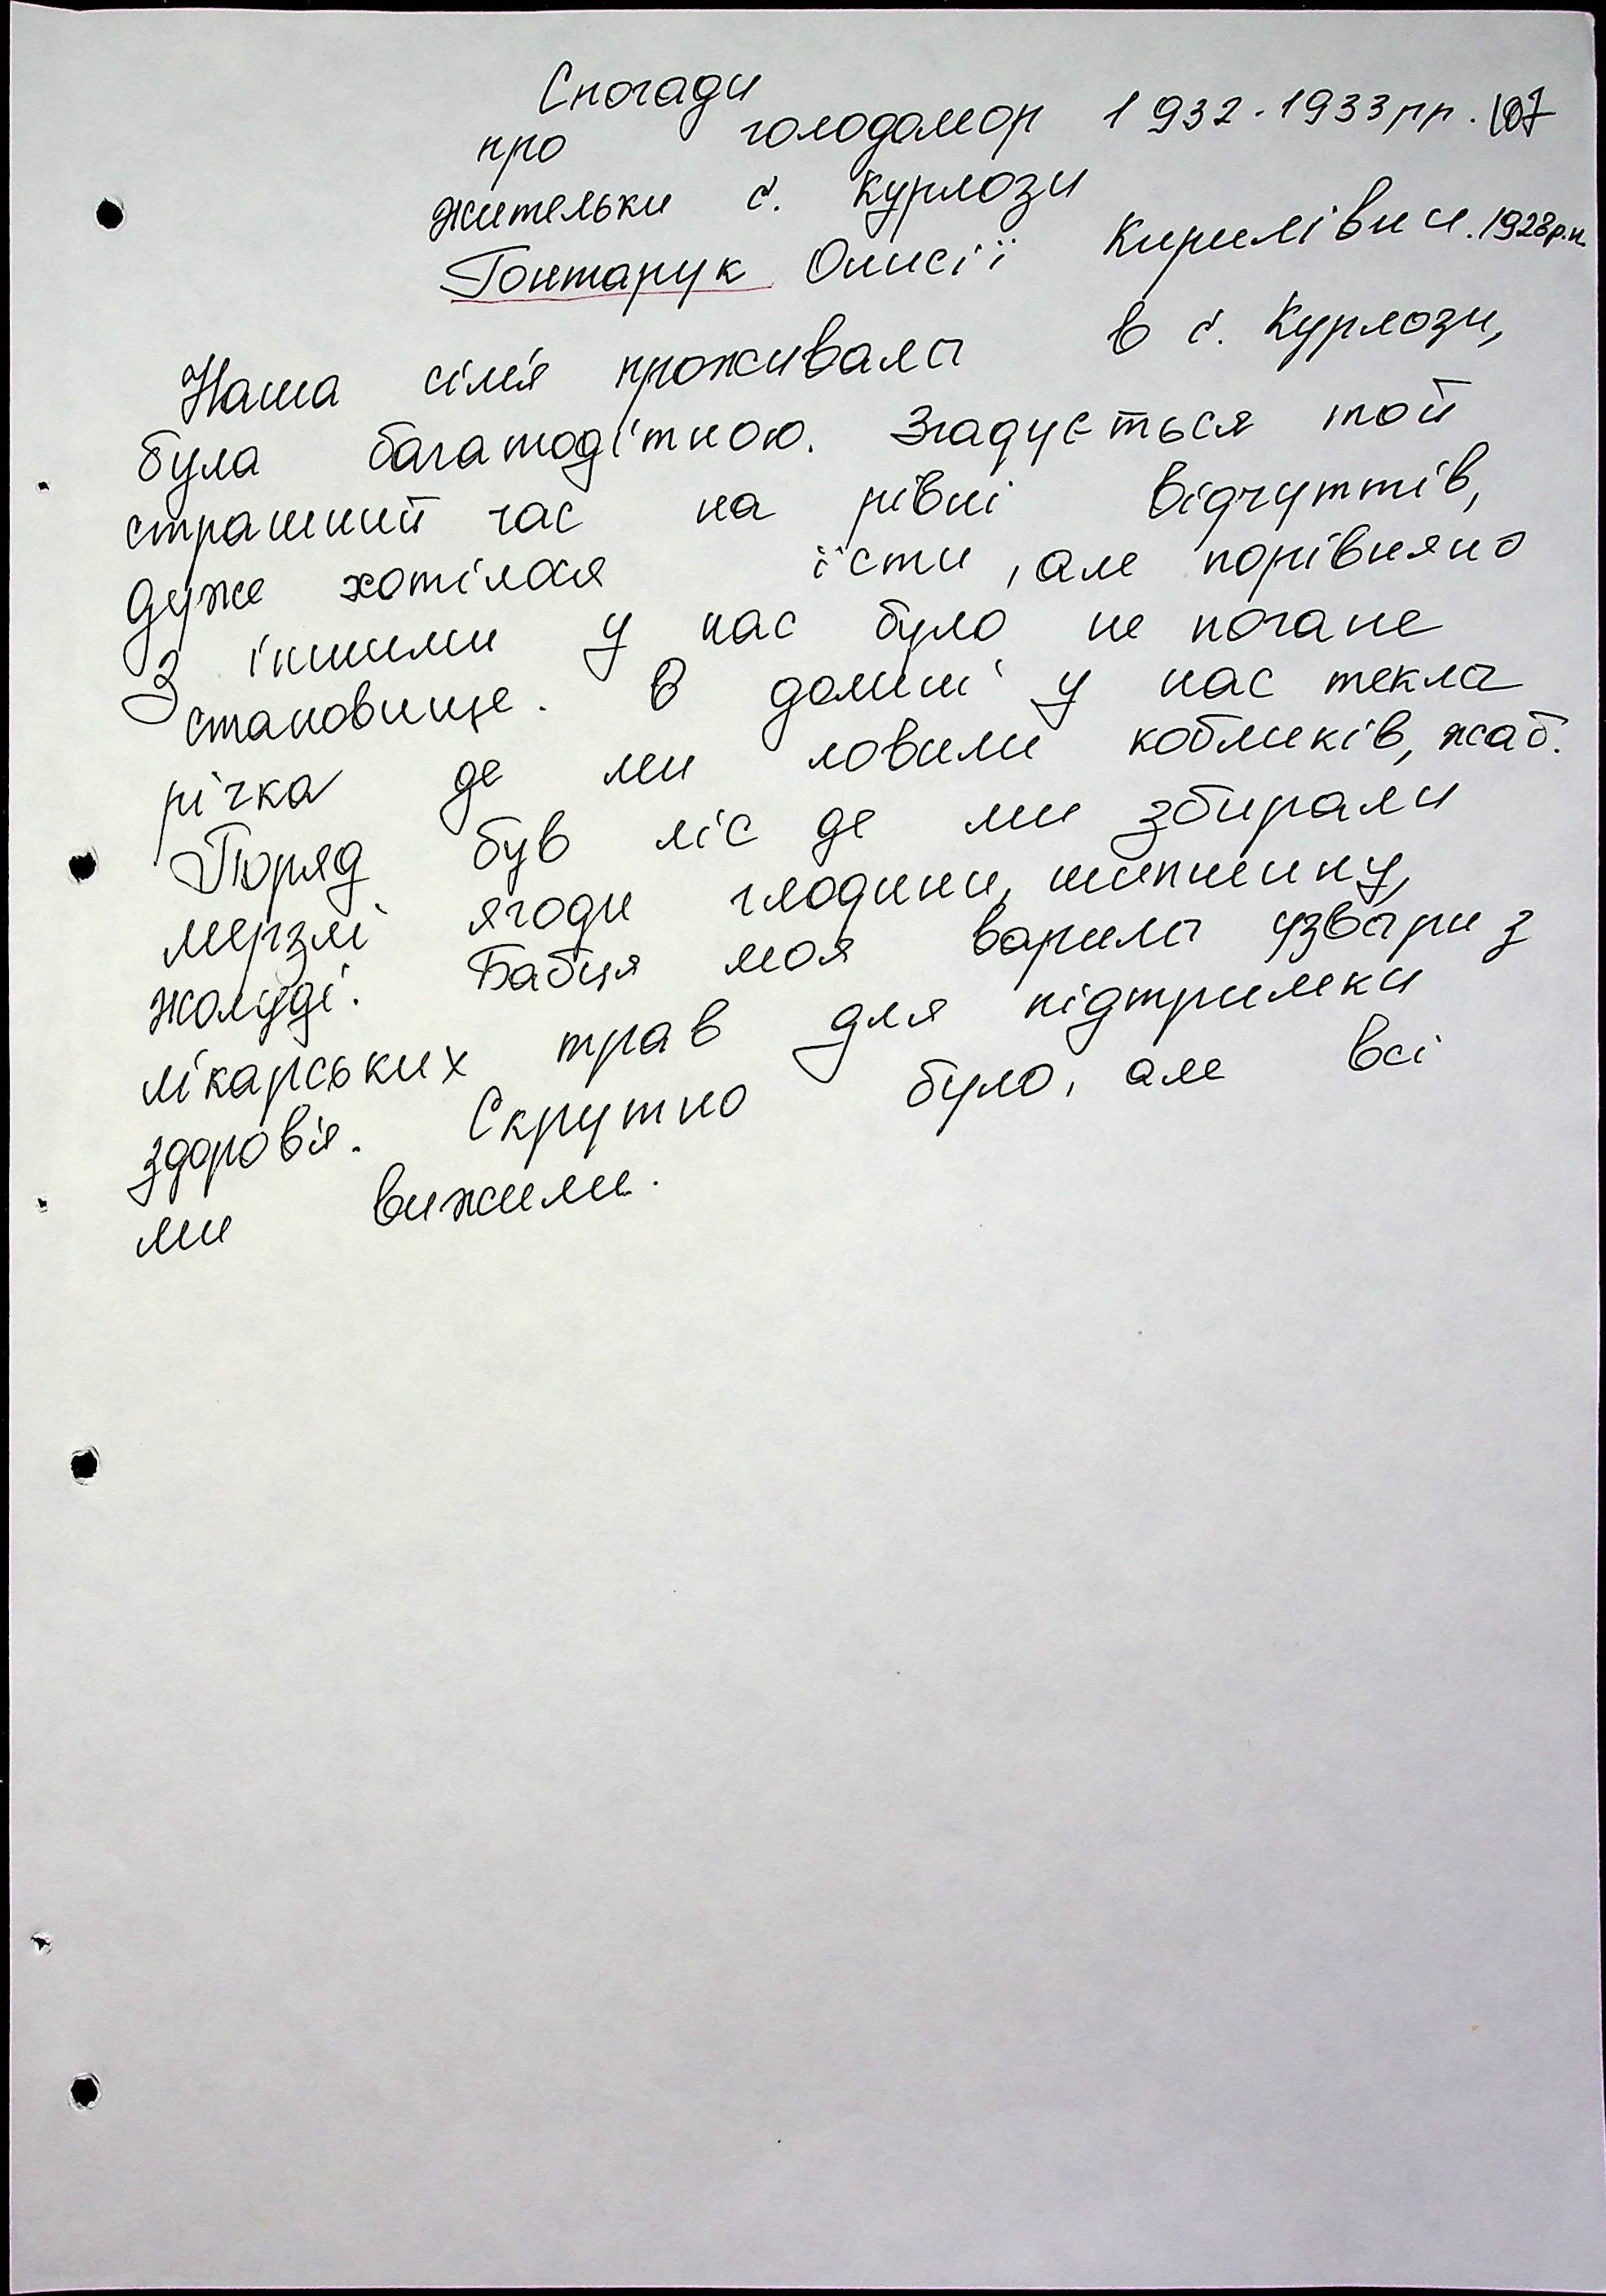 Спогади
про голодомор 1932-1933рр. 107
жительки с. Курлози
Гонтарук Олисії Кирилівни. 1928р.н.
Наша сім'я проживала в с. Курлози,
була багатодітною. Згадується той
страшний час на рівні відчуттів,
дуже хотілося їсти, але порівняно
з іншими у нас було не погане
становище. В долині у нас текла
річка де ми ловили кобликів, жаб.
Поряд був ліс де ми збирали
мерзлі ягоди глодини, шипшину,
жолуді. Бабця моя варила узвари з
лікарських трав для підтримки
здоров'я. Скрутно було, але всі
ми вижили.